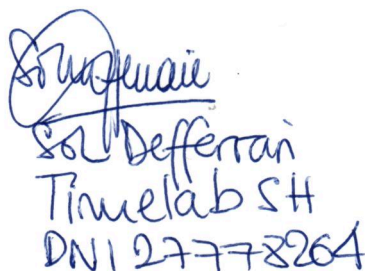 Sol Defferrari
Timelab SH
DNI 27778264